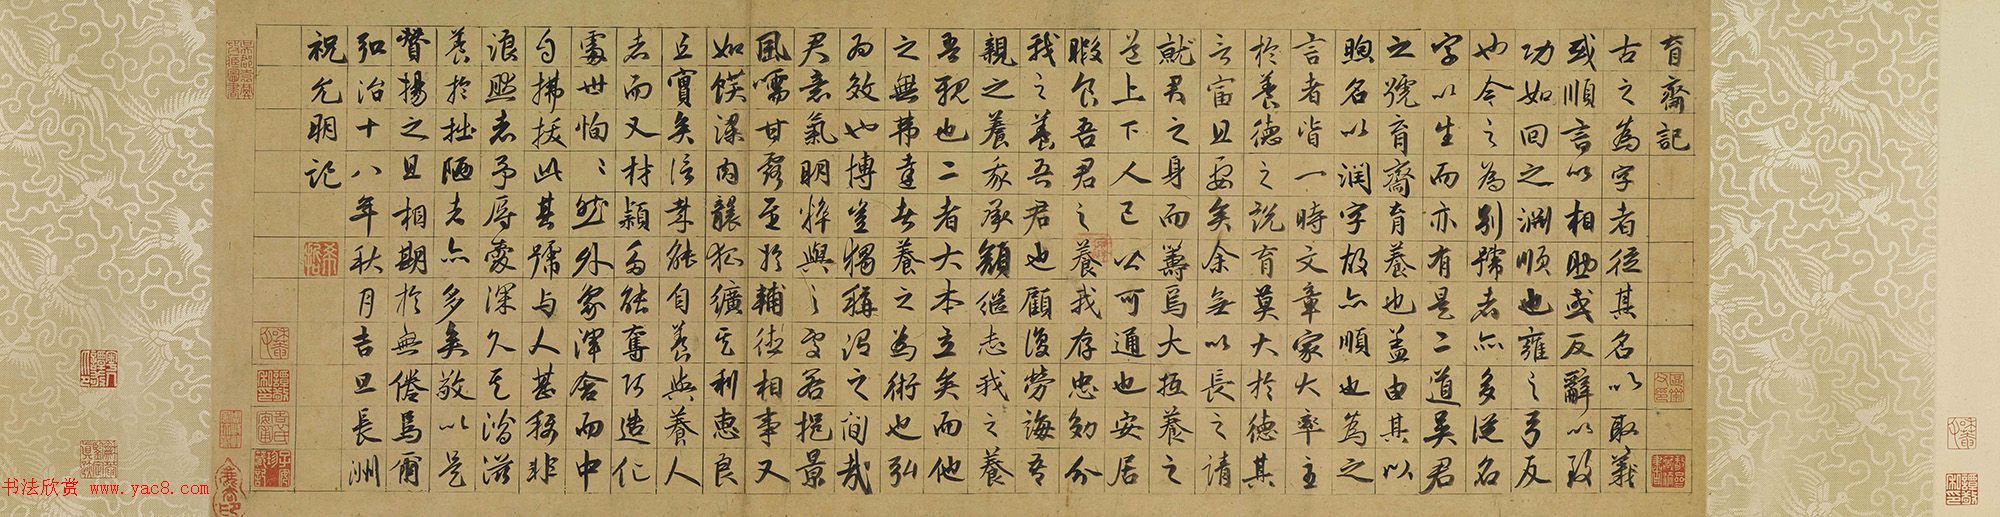 育齋記
古之為字者從其名以取義
或順言以相助或反辭以致
功如回之淵順也雍之弓反
也今之為別號者亦多從名
字以生而亦有是二道吳君
之號育齋育養也蓋由其以
煦名以潤字故亦順也為之
言者皆一時文章家大率主
於養德之說育莫大於德其
言富且要矣余無以長之請
就君之身而籌焉大抵養之
道上下人己公可通也安居
暇食吾君之養我存忠効分
我之養吾君也顧復勞誨吾
親之養我承顏繼志我之養
吾親也二者大本立矣而他
之無弗達者養之為術也弘
為效也博豈獨稱謂之間哉
君意氣明粹與之處若挹景
風嚅甘露至於輔德相事又
如饃深內釀狐纊其利惠良
且實矣信其能自養與養人
者而又材穎多能奪巧造化
處世恂〻然外象渾舍而中
自拂拔此其號与人甚稱非
浪然者予辱愛深久其滄滋
養於拙陋者亦多矣敬以是
贊揚之且相期於無倦焉爾
弘治十八年秋月吉旦長洲
祝允明記
书法欣赏 www.yac8.com